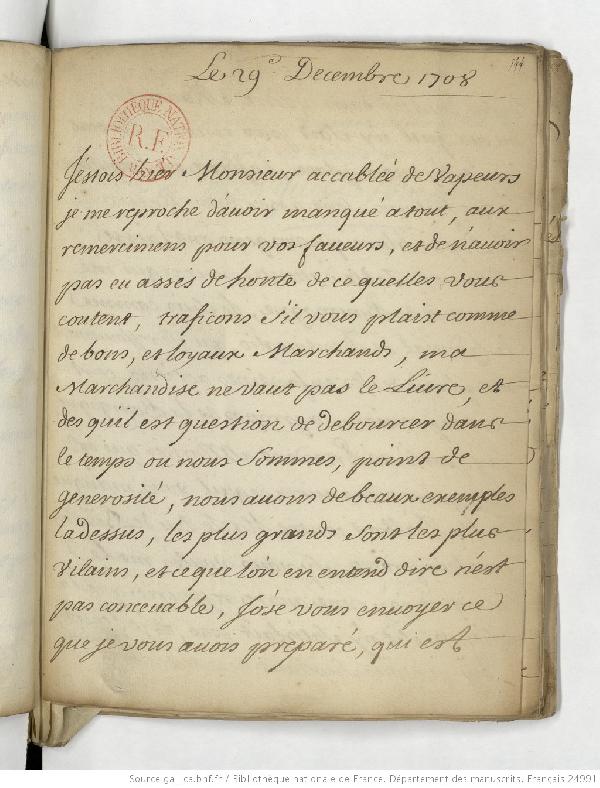 Le 29e Decembre 1708
144
BIBLIOTHEQUE NATIONALE
R.F.
J'éstois hier Monsieur accablée de Vapeurs
je me reproche d'auoir manqué a tout, aux
remercimens pour vos faueurs, et de n'auoir
pas eu assés de honte de ce quelles vous
coutent, traficons s'il vous plaist comme
de bons, et loyaux Marchands, ma
Marchandise ne vaut pas le Liure, et
des qu'il est question de debourcer dans
le temps ou nous sommes, point de
generosité, nous auons de beaux exemples
la dessus, les plus grands sont les plus
Vilains, et ce que lon en entend dire n'est
pas conceuable, J'óse vous enuoyer ce
que je vous auois preparé, qui est
Source gallica.bnf.fr / Bibliothèque nationale de France. Département des manuscrits. Français 24991